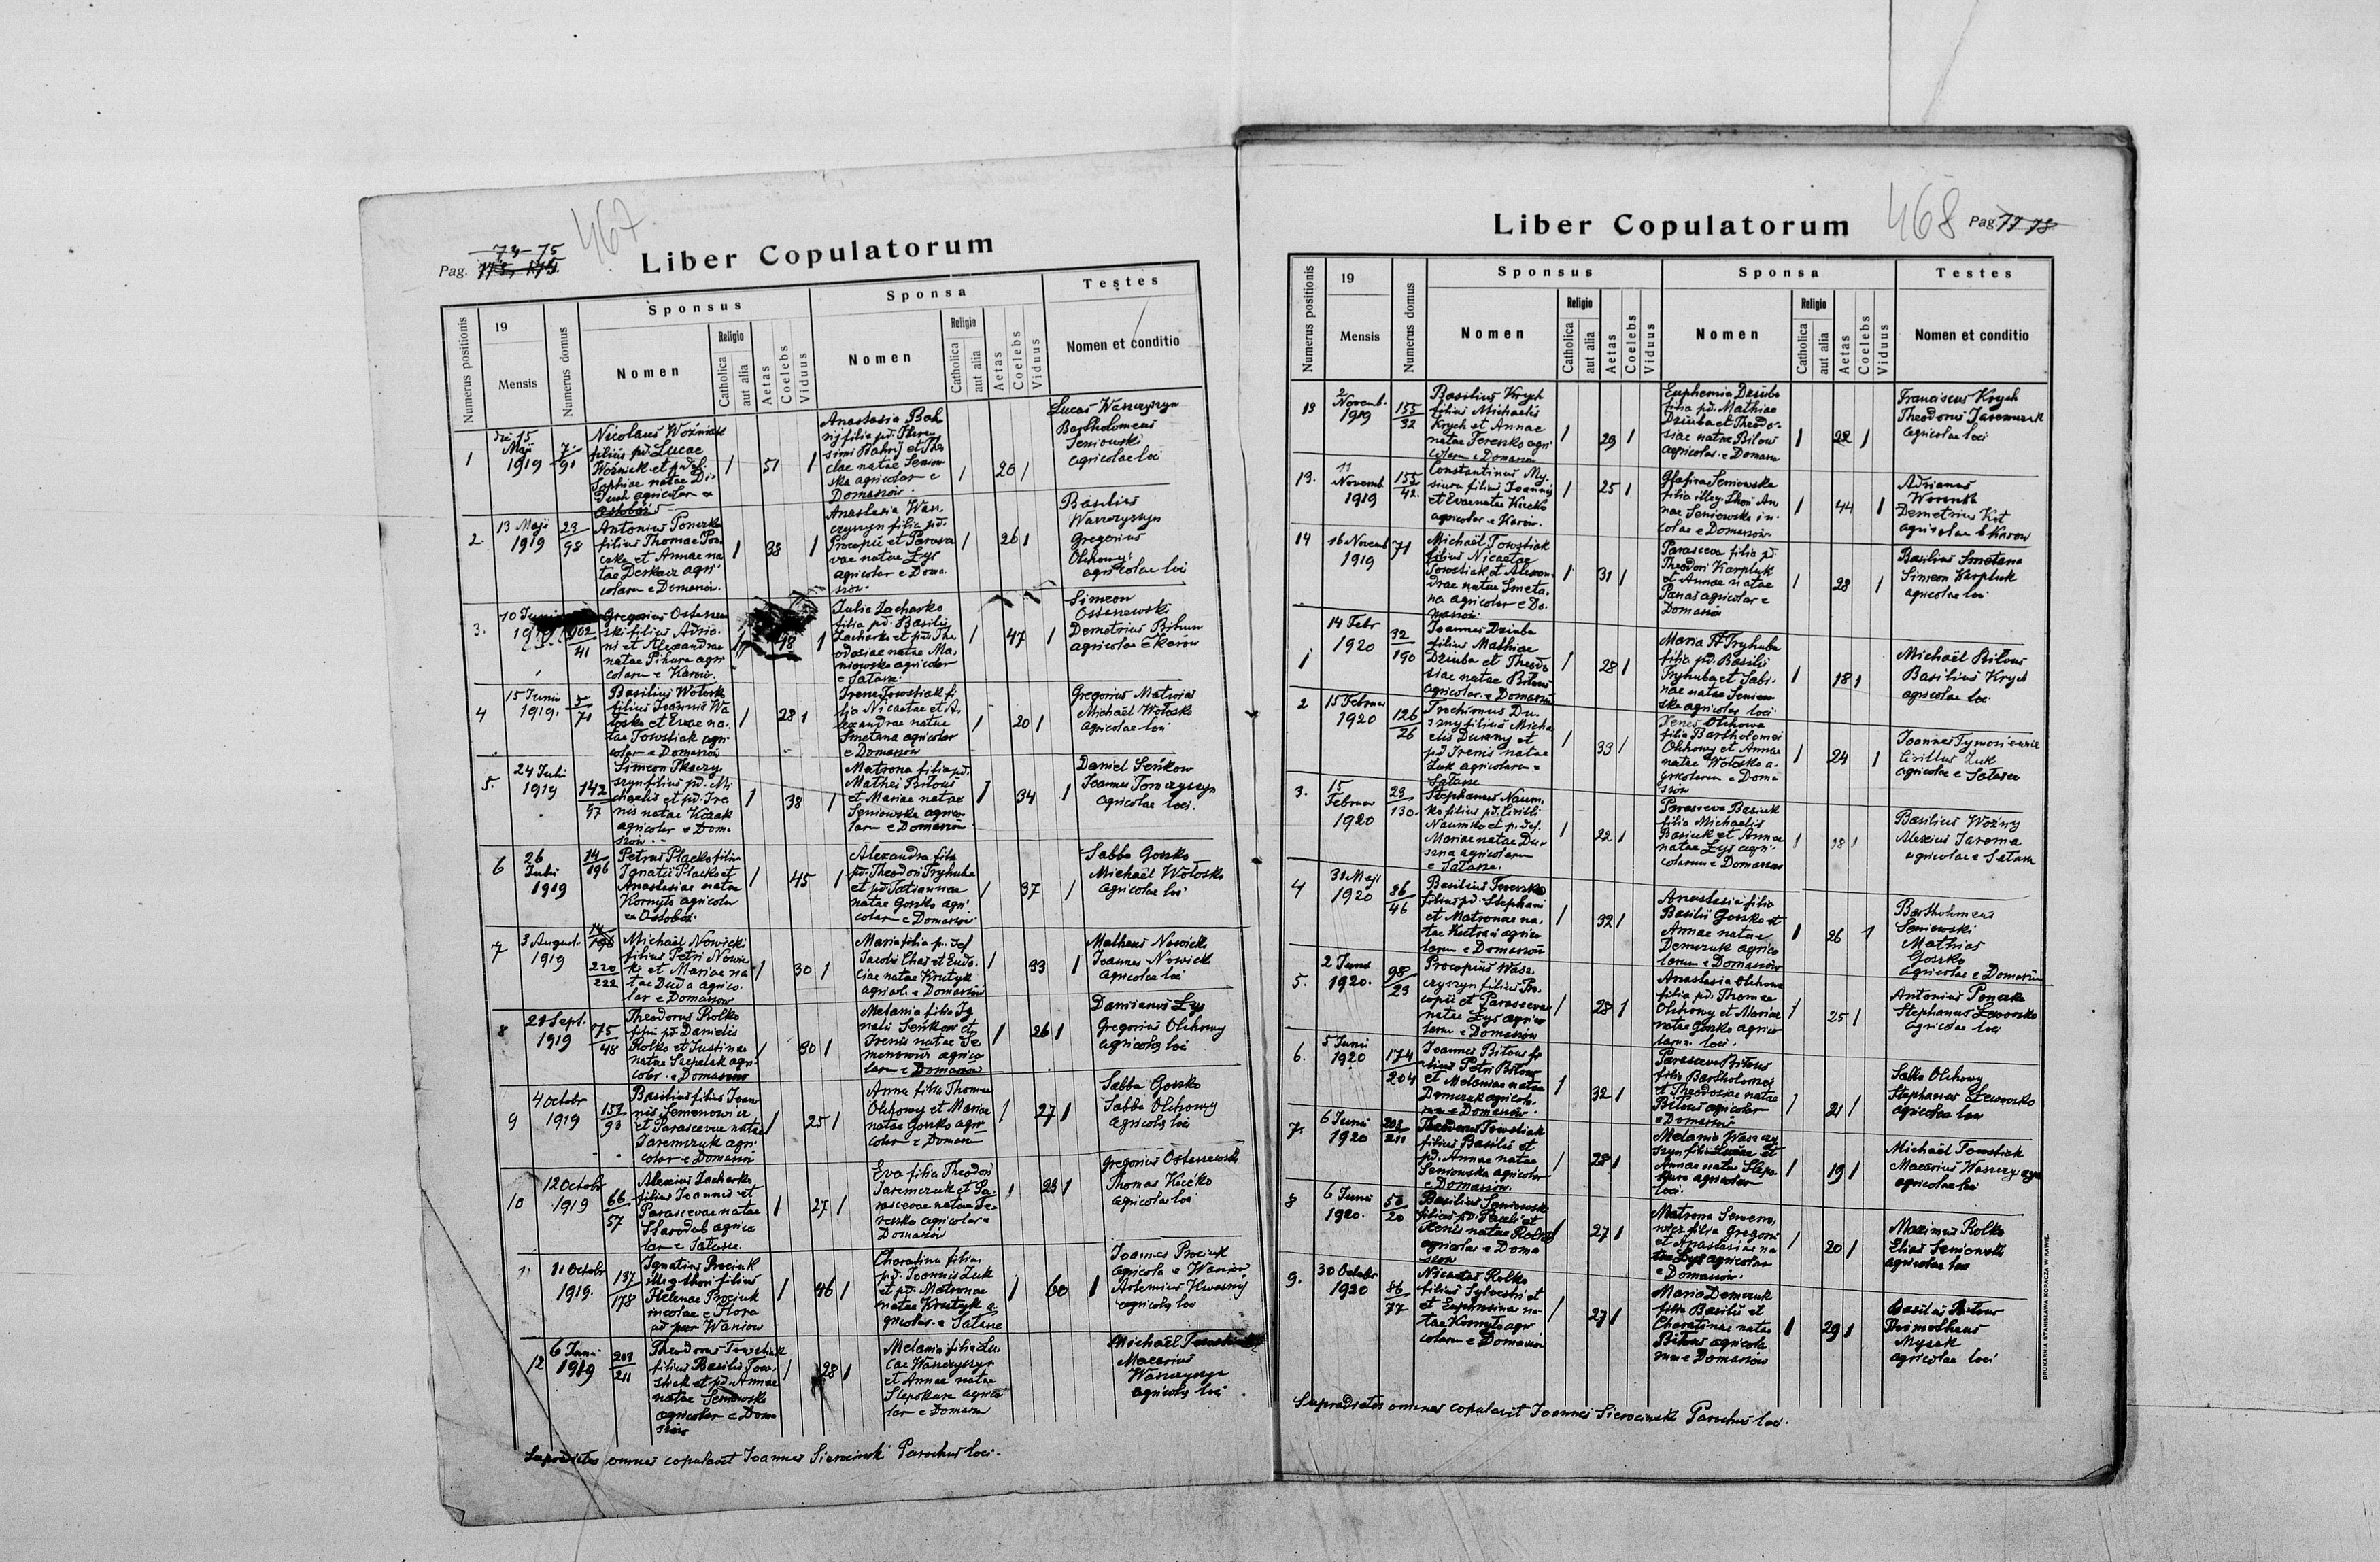 467
Pag. 74-75
Liber Copulatorum
Numerus positionis
19
Mensis
Numerus domus
Sponsus
Nomen
Religio
Catholica
aut alia
Aetas
Coelebs
Viduus
Sponsa
Nomen
Religio
Catholica
aut alia
Aetas
Coelebs
Viduus
Testes
Nomen et conditio
1
die 15
Maji
1919
7
91
Nicolaus Woźniak
filius pd. Lucae
Woźniak et pd. f.
Sophiae natae
agricolar e
51
Anastasia
filia pd.
et The
clae natae Seniow
ska agricolar e
Domaszów.
20
Lucas Waszczyszyn
Bartholomeus
Seniowski
agricolae loci
2
13 Maji
1919
23
98
Antonius Ponczka
filius Thomae Pon
czka et Annae na
tae agri
colarum e Domaszów.
38
Anastasia Wasz
czyszyn filia pd.
Procopii et Parasce
vae natae Łys
agricolar e Doma
szów.
26
Basilius
Waszczyszyn
Gregorius
Olchowy
agricolae loci
3.
10 Junii
1919
102
41
Gregorius Ostaszew
ski filius Adria
ni et Alexandrae
natae Pikura agri
colarum e Karów.
48
Julia Zacharko
filia pd. Basilii
Zacharko et pd. The
odosiae natae Ma
niowska agricolar
e Tatarze.
47
Simeon
Ostaszewski
Demetrius Bihun
agricolae e Karów
4
15 Junii
1919.
5
71
Basilius Wołosko
filius Joannis Wo
łosko et Evae na
tae Towstiak agri
colar e Domaszów
28
Irene Towstiak fi
lia Nicaetae et A
lexandrae natae
Smetana agricolar
e Domaszów
20
Gregorius Matwias
Michaël Wołosko
agricolae loci
5.
24 Julii
1919
142
57
Simeon Tkaczy
szyn filius pd. Mi
chaelis et pd. Ire
nis natae Kozak
agricolar e Doma
szów.
38
Matrona filia pd.
Mathei Biłous
et Mariae natae
Seniowska agrico
larum e Domaszów
34
Daniel Seńkow
Joannes Tomczyszyn
agricolae loci.
6
26
Julii
1919
14
196
Petrus Placko filius
Ignatii Placko et
Anastasiae natae
Kornyło agricolar
ex Ostobuż.
45
Alexandra filia
pd. Theodori Tryhuba
et pd. Tatiannae
natae Gorsko agri
colar e Domaszów
37
Sabba Gorsko
Michaël Wołosko
agricolae loci
7
3 August.
1919
220
222
Michaël Nowicki
filius Petri Nowic
ki et Mariae na
tae Duda agrico
lar e Domaszów
30
Maria filia p. def
Jacobi Chas et Eudo
ciae natae Krutyk
agricol. e Domaszów
33
Matheus Nowicki
Joannes Nowicki
agricolae loci
8
21 Sept.
1919
75
48
Theodorus Rolko
filius pd. Danielis
Rolko et Justinae
natae Szepelak agri
color. e Domaszów
30
Melania filia Ig
natii Seńkow et
Irenis natae Se
menowicz agrico
larum e Domaszów
26
Damianus Łys
Gregorius Olchowy
agricolae loci
9
4 Octobr
1919
152
93
Basilius filius Joan
nis Semenowicz
et Parascevae natae
Jaremczuk agri
colar e Domaszów
25
Anna filia Thomae
Olchowy et Mariae
natae Gorsko agri
colar e Domasz
27
Sabba Gorsko
Sabba Olchowy
agricolae loci
10
12 Octobr
1919
66
57
Alexius Zacharko
filius Joannis et
Parascevae natae
Starodub agrico
lar e Tatarze.
27
Eva filia Theodori
Jaremczuk et Pa
rascevae natae Te
reszko agricolar e
Domaszów
23
Gregorius Ostaszewski
Thomas Kuczko
agricolae loci
11
11 Octobr
1919.
137
178
Ignatius Prociuk
illeg. thori filius
Helenae Prociuk
incolae e Hora
ad Waniow
46
Charatina filia
pd. Joannis Żuk
et pd. Matronae
natae Krutyk a
gricolar. e Tatarze
60
Joannes Prociuk
agricola e Waniow
Artemius Kwasnij
agricolae loci
12
6 Junii
1919
209
211
Theodorus Towstiak
filius Basilii Tow
stiak et pd. Annae
natae Seniowska
agricolar e Doma
szów
28
Melania filia Lu
cae Waszczyszyn
et Annae natae
Slepokura agrico
lar e Domasz
Michaël Towstiak
Macarius
Waszczyszyn
agricolae loci
Supradictos omnes copulavit Joannes Sierocinski Parochus loci.
468
Pag. 77 78
Liber Copulatorum
Numerus positionis
19
Mensis
Numerus domus
Sponsus
Nomen
Religio
Catholica
aut alia
Aetas
Coelebs
Viduus
Sponsa
Nomen
Religio
Catholica
aut alia
Aetas
Coelebs
Viduus
Testes
Nomen et conditio
13
2
Novemb.
1919
155
32
Basilius Krych
filius Michaelis
Krych et Annae
natae Tereszko agri
colarum e Domaszów
29
Euphemia Dziuba
filia pd. Mathiae
Dziuba et Theodo
siae natae Biłous
agricolar. e Domasz
22
Franciscus Krych
Theodorus Jaremczuk
agricolae loci
13.
11
Novemb
1919
155
42.
Constantinus My
siura filius Joannis
et Eva natae Kuczko
agricolar e Karów.
25
Glafira Seniowska
filia illeg. thori An
nae Seniowska in
colae e Domaszów
44
Adrianus
Demetrius Kot
agricolae e Karow
14
16 Novemb
1919
71
Michaël Towstiak
filius Nicaetae
Towstiak et Alexan
drae natae Smeta
na agricolar e Do
maszów
31
Parasceva filia pd
Theodori Karpluk
et Annae natae
Panas agricolar e
Domaszów
28
Basilius Smetana
Simeon Karpluk
agricolae loci
1
14 Febr
1920
32
190
Joannes Dziuba
filius Mathiae
Dziuba et Theodo
siae natae Biłous
agricolar. e Domaszów
28
Maria Tryhuba
filia pd. Basilii
Tryhuba et Sabi
nae natae Seniow
ska agricolar loci
18
Michaël Biłous
Basilius Krych
agricolae loci
2
15 Februar
1920
126
26
Trochimus Du
szny filius Micha
elis Duszny et
pd Irenis natae
Żuk agricolarum e
Tatarze
33
Xenes Olchowa
filia Bartholomei
Olchowy et Annae
natae Wołosko a
gricolarum e Doma
szów
24
Joannes Tymosiewicz
Cirillus Żuk
agricolae e Tatarze
3.
15
Februar
1920
23
130.
Stephanus Naum
ko filius pd. Cirilli
Naumko et p. def.
Mariae natae Du
szna agricolarum
e Tatarze.
22
Parasceva Basiuk
filia Michaelis
Basiuk et Annae
natae Łys agri
colarum e Domaszów
18
Basilius Woźny
Alexius Jarema
agricolae e Tatarze
4
31 Maji
1920
86
46
Basilius Tereszko
filius pd. Stephani
et Matronae na
tae agrico
larum e Domaszów
32
Anastasia filia
Basilii Gorsko et
Annae natae
Demczuk agrico
larum e Domaszów
26
Bartholomeus
Seniowski
Mathias
Gorsko
agricolae e Domaszów
5.
2 Junii
1920.
98
23
Procopius Wasz
czyszyn filius Pro
copii et Parascevae
natae Łys agrico
larum e Domaszów
28
Anastasia Olchowa
filia pd. Thomae
Olchowy et Mariae
natae Gorsko agrico
larum loci.
25
Antonius Ponczka
Stephanus Laworsko
agricolae loci
6.
5 Junii
1920
174
204
Joannes Biłous fi
lius Petri Biłous
et Melaniae natae
Demczuk agricola
rum e Domaszów
32
Parasceva Biłous
filia Bartholomei
et Theodosiae natae
Biłous agricolar
e Domaszów
21
Sabba Olchowy
Stephanus Laworsko
agricolae loci
7.
6 Junii
1920
209
211
Theodorus Towstiak
filius Basilii et
pd. Annae natae
Seniowska agricolar
e Domaszów.
28
Melania Waszczy
szyn filia Lucae et
Annae natae Slepo
kura agricolar
loci.
19
Michaël Towstiak
Macarius Waszczyszyn
agricolae loci
8
6 Junii
1920.
50
20
Basilius Seniowski
filius pd. Pauli et
Xenis natae Rolko
agricolar e Doma
szów
27
Matrona Semeno
wicz filia Gregorii
et Anastasiae na
tae Łys agricolar
e Domaszów.
20
Maximus Rolko
Elias Seniowski
agricolae loci
9.
30 Octobr
1920
86
77
Nicaetas Rolko
filius Sylvestri et
et Euphrosinae na
tae Kornyło agri
colarum e Domaszów
27
Maria Demczuk
filia Basilii et
Charatinae natae
Biłous agricola
rum e Domaszów
29
Basilius Biłous
Thimotheus
Mysak
agricolae loci
Supradictos omnes copulavit Joannes Sierocinski Parochus loci.
DRUKARNIA STANISŁAWA KOPACZA W RAWIE.